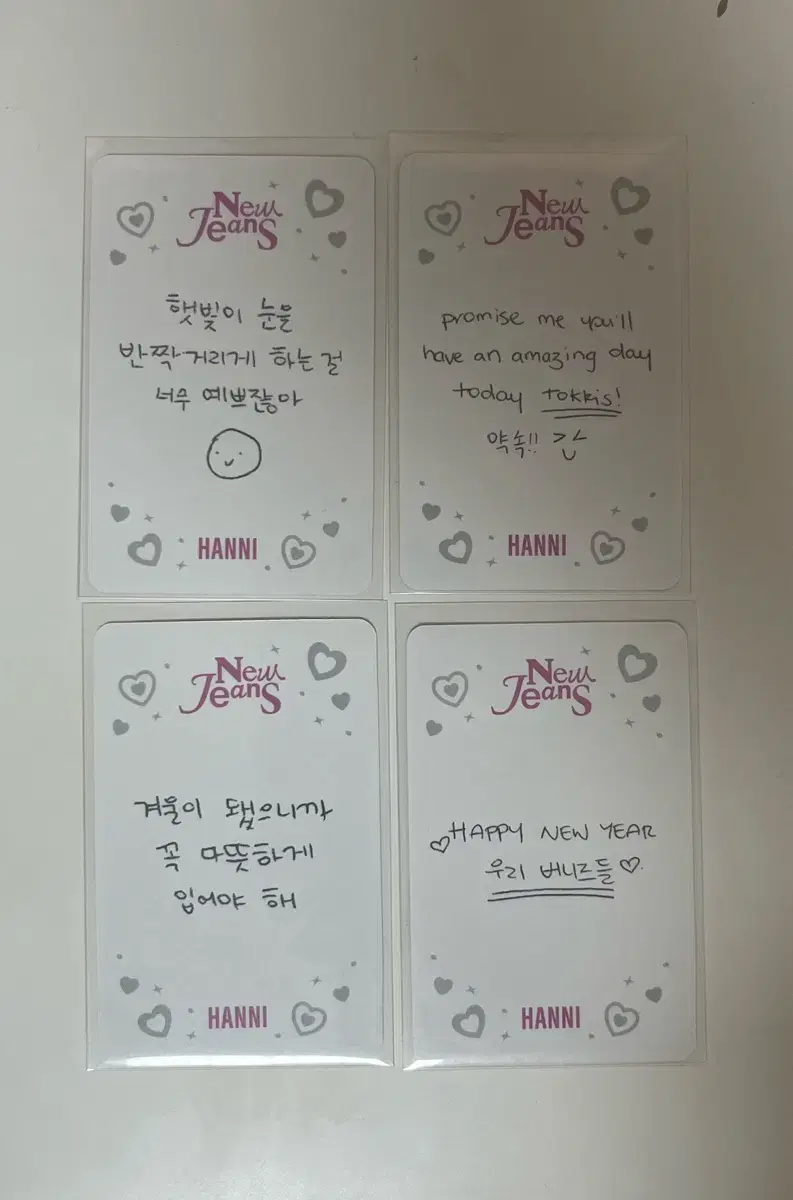 New
Jeans
햇빛이 눈을
반짝거리게 하는 걸
너무 예쁘잖아
HANNI
New
Jeans
promise me you'll
have an amazing day
today TOKKIS!
약속!!
HANNI
New
Jeans
겨울이 됐으니까
꼭 따뜻하게
입어야 해
HANNI
New
Jeans
HAPPY NEW YEAR
우리 버니즈들
HANNI